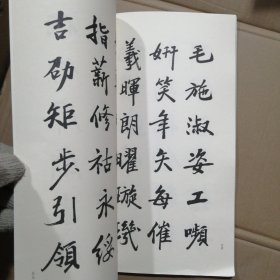 毛施淑姿工嚬
妍笑年矢每催
羲暉朗曜璇璣
指薪修祜永綏
吉劭矩步引領